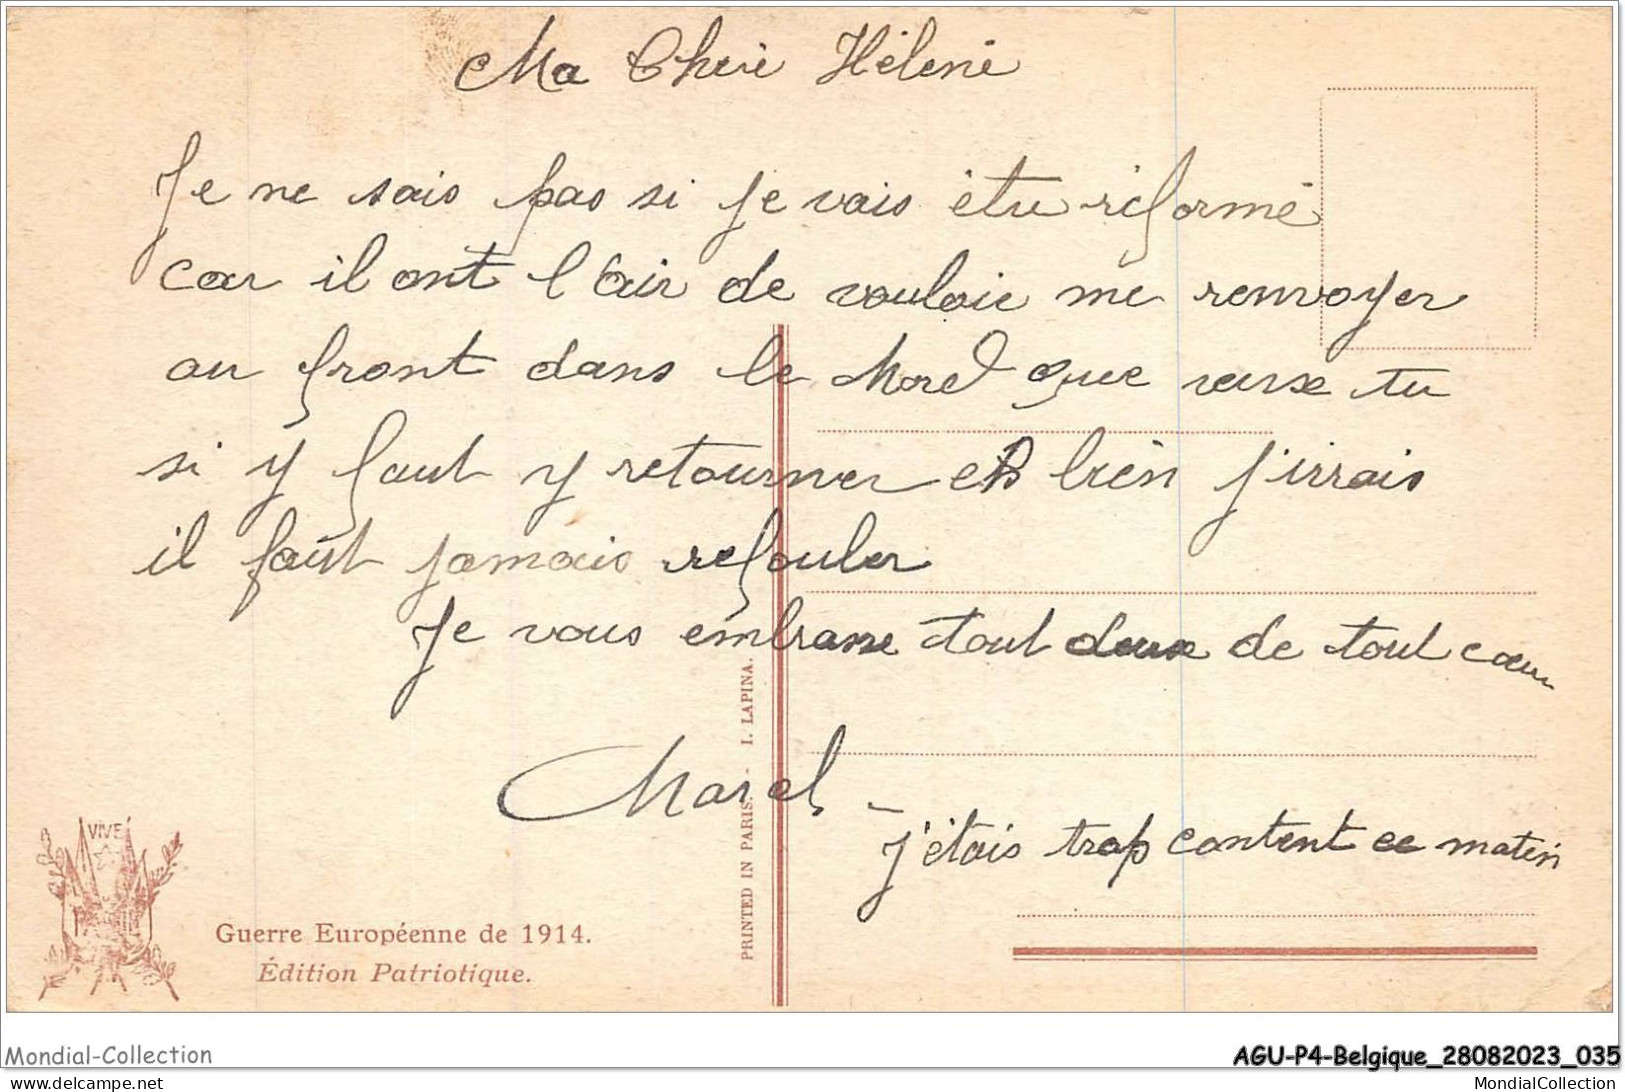 Ma Cherè Hélenè
Je ne sais pas si je vais être réformé
car il ont l'air de vouloir me renvoyer
au front dans le Nord que veux tu
si y faut y retourner eh bien j'irrais
il faut jamais refouler
Je vous embrasse tout deux de tout cœur
Marcel -
j'étais trop content ce matin
PRINTED IN PARIS. - I. LAPINA.
VIVE
Guerre Européenne de 1914.
Édition Patriotique.
Mondial-Collection
AGU-P4-Belgique_28082023_035
www.delcampe.net
MondialCollection